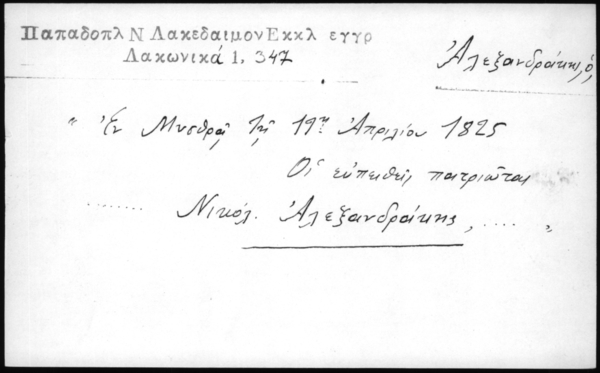 Παπαδοπλ Ν ΛακεδαιμονΕκκλ εγγρ
Λακωνικά 1, 347
Ἀλεξανδράκης, ὁ,
" Ἐν Μυσθρᾷ τῇ 19ῃ Ἀπριλίου 1825
Οἱ εὐπειθεῖς πατριῶται
....... Νικόλ. Ἀλεξανδράκης, .... "